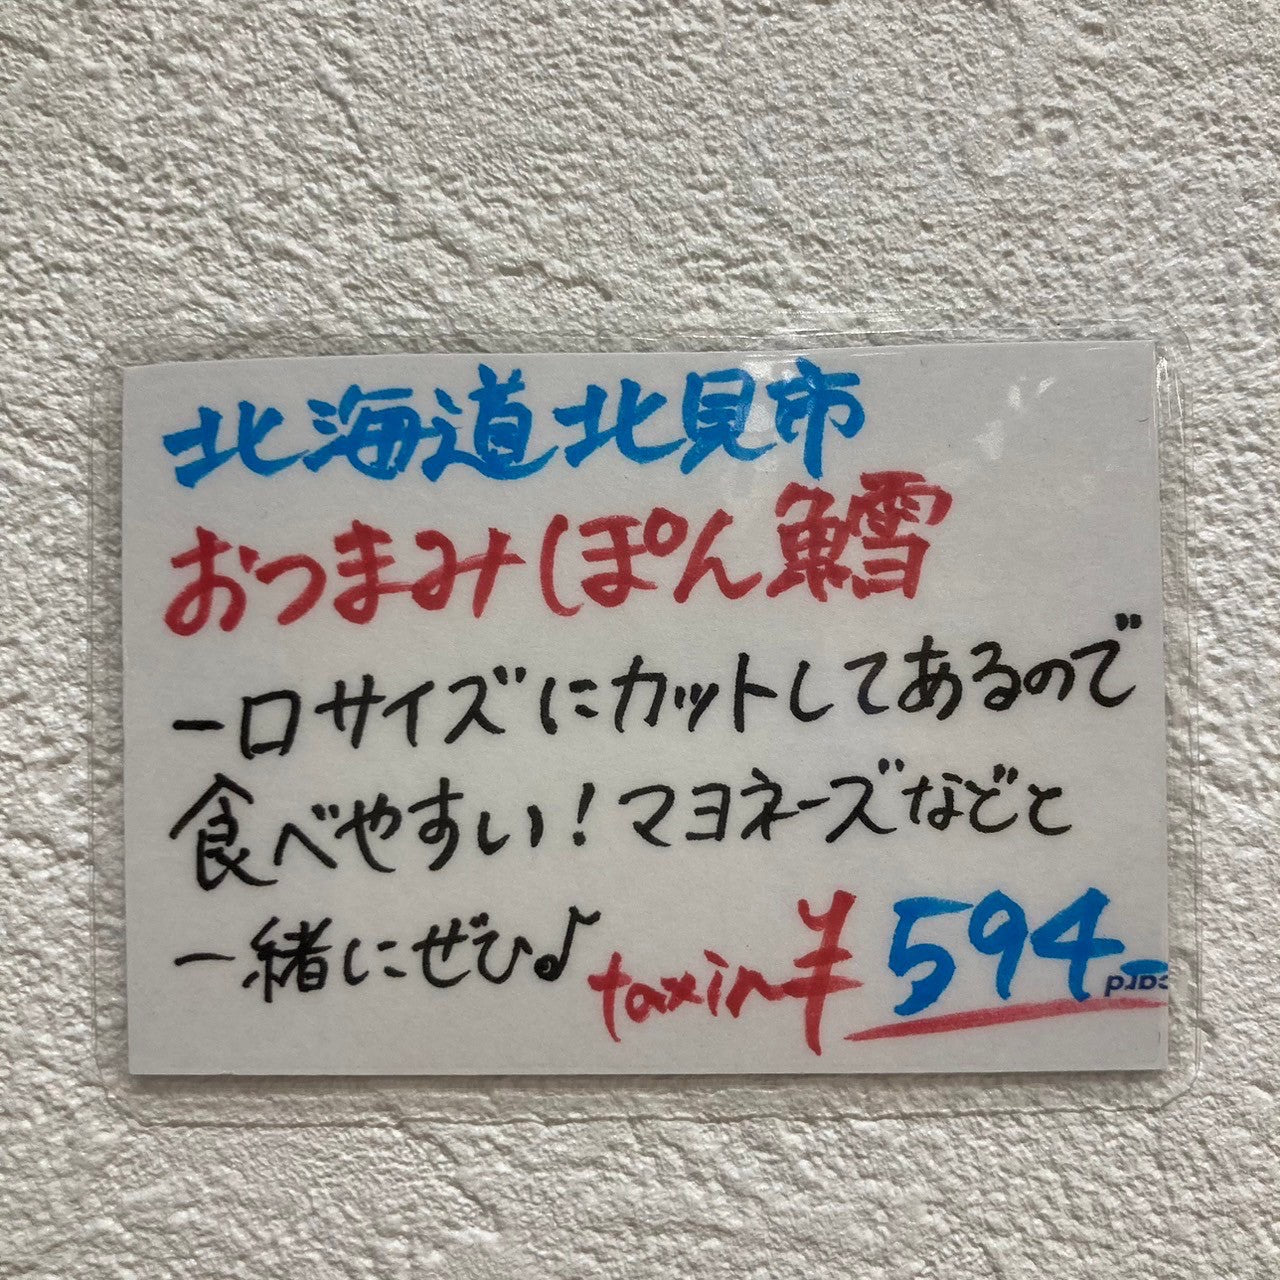 北海道北見市
おつまみしぽん鱈
一口サイズにカットしてあるので
食べやすい!マヨネーズなどと
一緒にぜひ♪
taxin¥594-
card